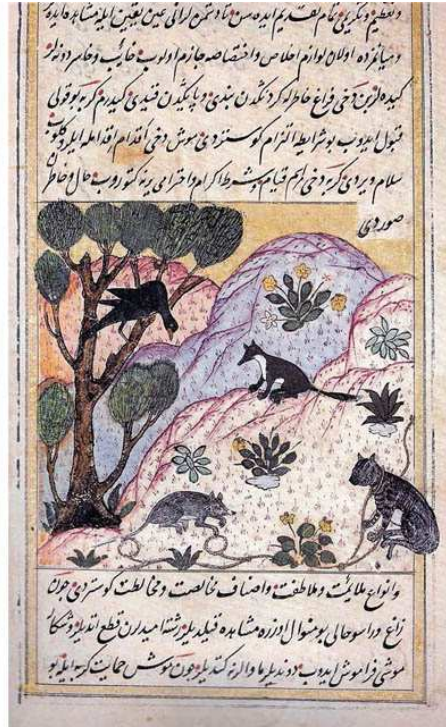 وتعظیم وتکریمی تمام تقدیم ایده سن تا دشمن عین یقین ایله مشاهده ایده
اولان لوازم اخلاص واختصاصه جازم اولوب خائب وخاسر دونه لر
دخی فراغ خاطرله کردنکدن بندی وپایکدن قیدی کیدرم کربه بو قولی
قبول ایدوب بو شرایط التزام کوستردی موش دخی اقدام
سلام ویردی کربه دخی قیام شرط اکرام واحترامی یرینه کتوروب حال وخاطر
صوردی
وانواع ملایمت وملاطفت واصناف مخالصت ومخالطت کوستردی چون
زاغ وراسو حالی بو منوال اوزره مشاهده قیلدیلر رشته امیدلرن قطع ایتدیلر وشکار
موشی فراموش ایدوب دوندیلر کتدیلر چون موش حمایت کربه ایله بو